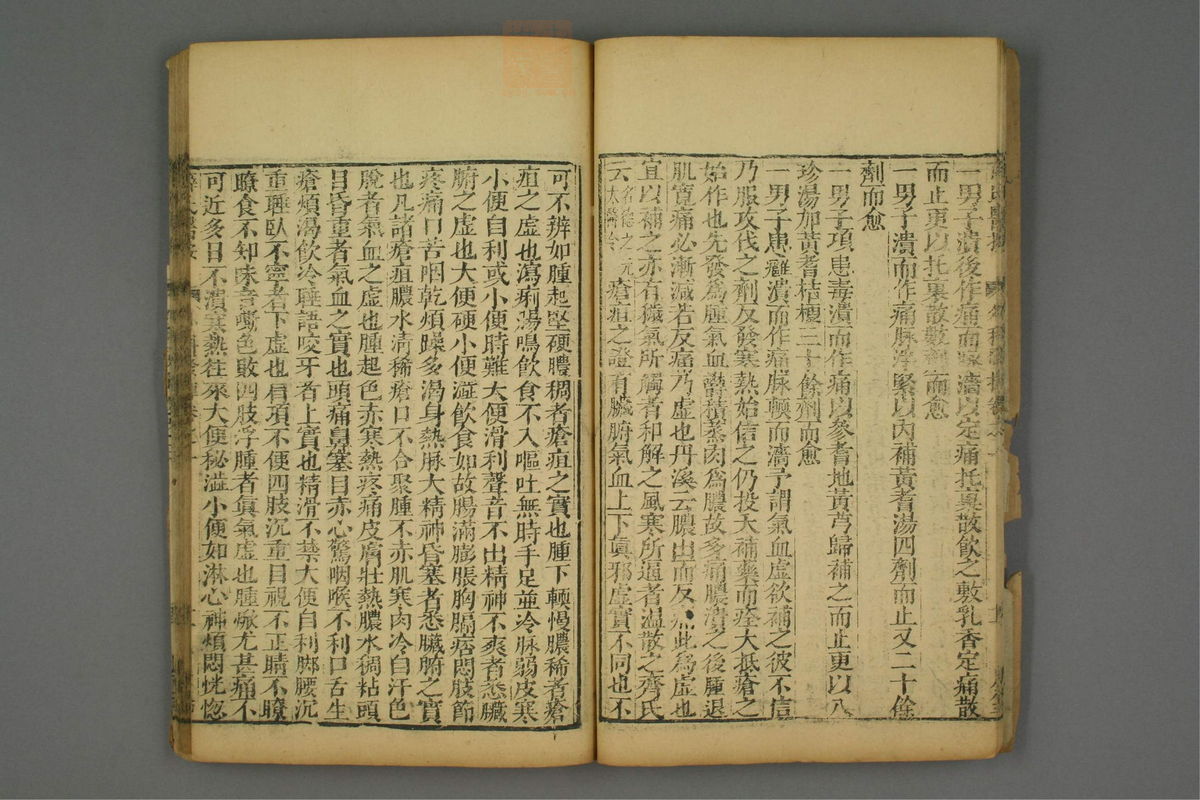 一男子潰後作痛而瀉濇以定痛托裏散飲之敷乳香定痛散
而止更以托裏散數劑而愈
一男子潰而作痛脉浮緊以內補黃耆湯四劑而止又二十餘
劑而愈
一男子項患毒潰而作痛以參耆地黃芎歸補之而止更以八
珍湯加黃耆桔梗三十餘劑而愈
一男子患癰潰而作痛脉頓而濇予謂氣血虛欲補之彼不信
乃服攻伐之劑反發寒熱始信之仍投大補藥而痊大抵瘡之
始作也先發爲腫氣血鬱積蒸肉爲膿故多痛膿潰之後腫退
肌寬痛必漸減若反痛乃虛也丹溪云膿出而反痛此爲虛也
宜以補之亦有穢氣所觸者和解之風寒所逼者溫散之齊氏
云名德之元太醫令瘡疽之證有臟腑氣血上下眞邪虛實不同也不
可不辨如腫起堅硬膿稠者瘡疽之實也腫下輭慢膿稀者瘡
疽之虛也瀉痢腸鳴飲食不入嘔吐無時手足並冷脉弱皮寒
小便自利或小便時難大便滑利聲音不出精神不爽者悉臟
腑之虛也大便硬小便澁飲食如故腸滿膨脹胸膈痞悶肢節
疼痛口苦咽乾煩躁多渴身熱脉大精神昏塞者悉臟腑之實
也凡諸瘡疽膿水清稀瘡口不合聚腫不赤肌寒肉冷自汗色
脫者氣血之虛也腫起色赤寒熱疼痛皮膚壯熱膿水稠粘頭
目昏重者氣血之實也頭痛鼻塞目赤心驚咽喉不利口舌生
瘡煩渴飲冷睡語咬牙者上實也精滑不禁大便自利腰脚沉
重睡臥不寧者下虛也肩項不便四肢沉重目視不正睛不瞭
瞭食不知味音嘶色敗四肢浮腫者眞氣虛也腫焮尤甚痛不
可近多日不潰寒熱往來大便秘澁小便如淋心神煩悶恍惚